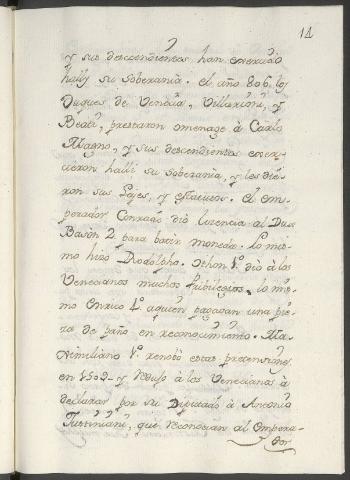 14
y sus descendientes han exercido
halli su soberania. el año 806. los
Duques de Venecia, Villarioni, y
Beati, prestaron omenage à Carlo
Magno, y sus descendientes exer-
cieron halli su soberania, y les die-
ron sus Lejes, y estatutos. el Em-
perador Conrado diò licencia al Dux
Basôn 2. para batir moneda. lo mis-
mo hizo Rodolpho. Othon 1.º dio à los
Venecianos muchos pribilegios, lo mis-
mo Enrico 4.º aquien pagaban una pie-
za de paño en reconocimiento. Ma-
ximiliano 1.º renobò estas pretensiones
en 1509- y reduso à los Venecianos à
declarar por su Diputado à Antonio
Justiniani, que reconocian al Empera-
dor